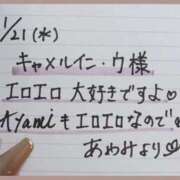 1/21(水)
キャメルイン・ウ様
エロエロ大好きですよ♡
Ayamiもエロエロなので
あやみより♡